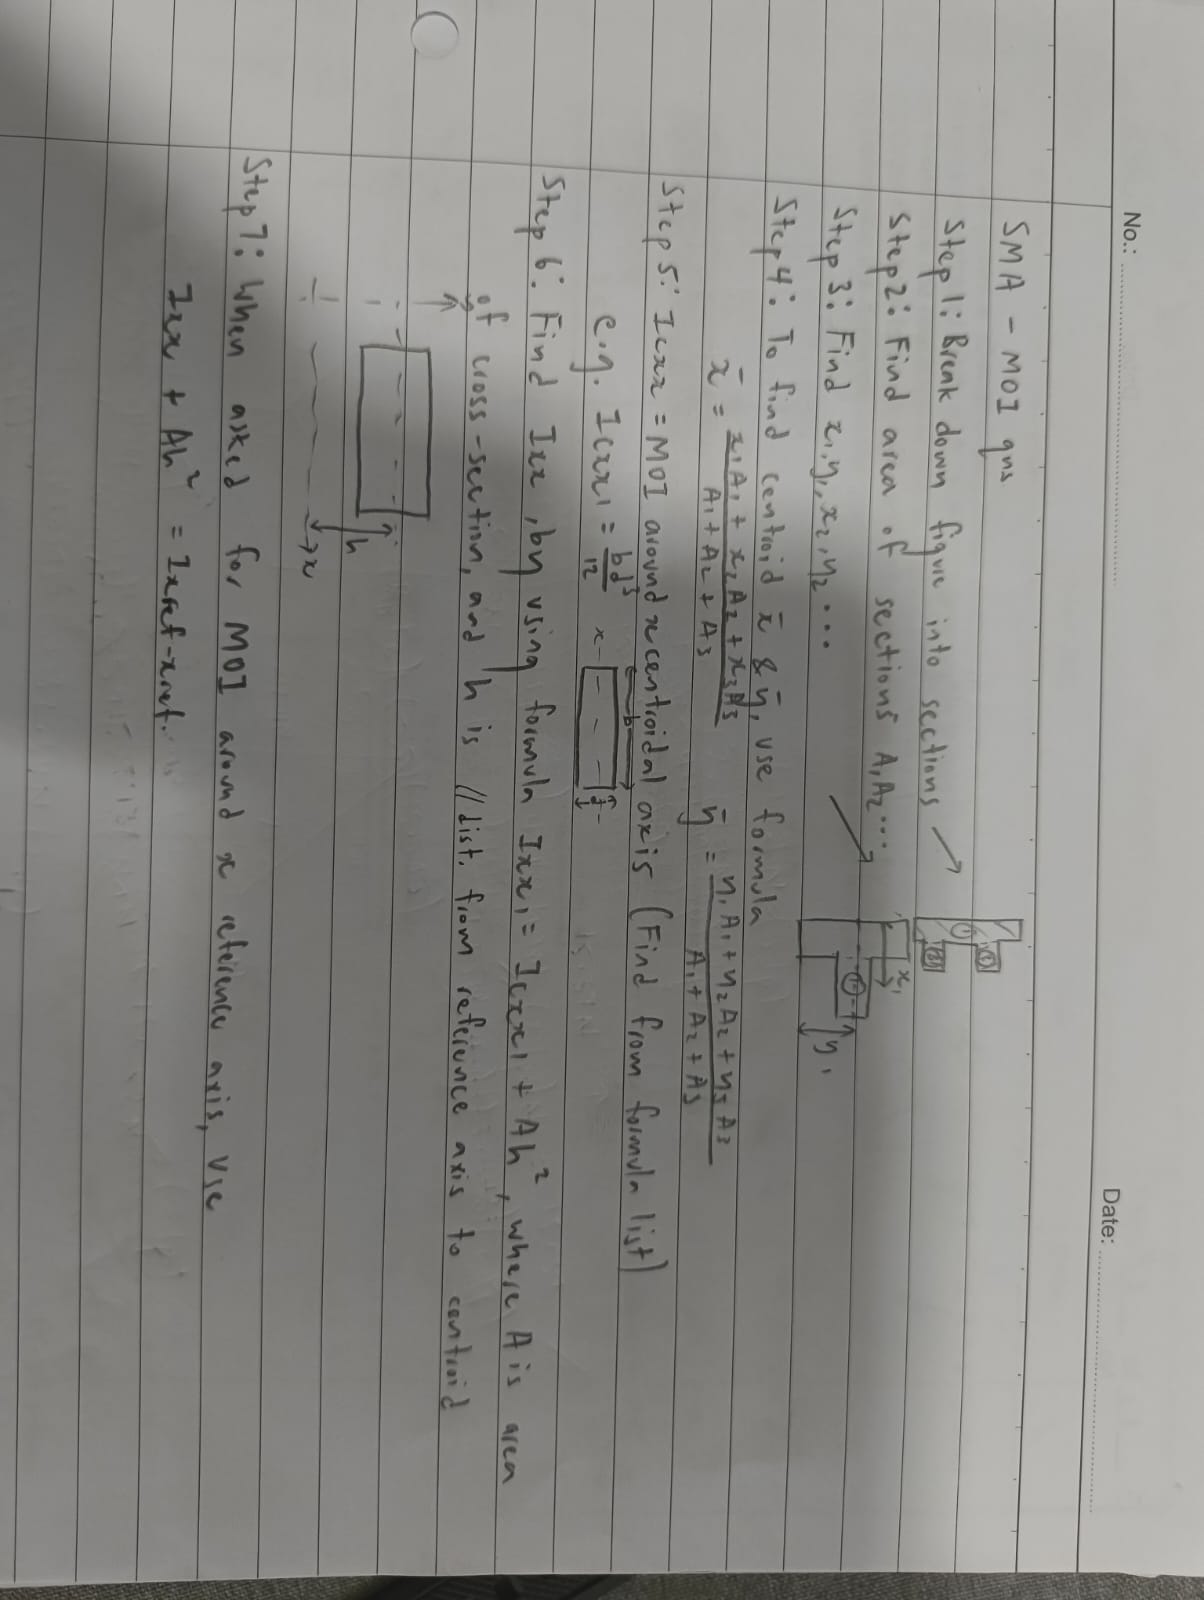 No.:
Date:
SMA - MOI qns
Step 1: Break down figure into sections
Step 2: Find area of sections A₁A₂...
Step 3: Find x₁,y₁,x₂,y₂...
x₁
y₁
Step 4: To find centroid x̄ & ȳ, use formula
x̄ = (x₁A₁ + x₂A₂ + x₃A₃)/(A₁ + A₂ + A₃) ȳ = (y₁A₁ + y₂A₂ + y₃A₃)/(A₁ + A₂ + A₃)
Step 5: Icxx = MOI around x centroidal axis (Find from formula list)
e.g. Icxx₁ = bd³/12 x b
Step 6: Find Ixx, by using formula Ixx₁ = Icxx₁ + Ah², where A is area
of cross-section, and h is //dist. from reference axis to centroid
h
x
Step 7: When asked for MOI around x reference axis, use
Ixx + Ah² = Ixref-xref.